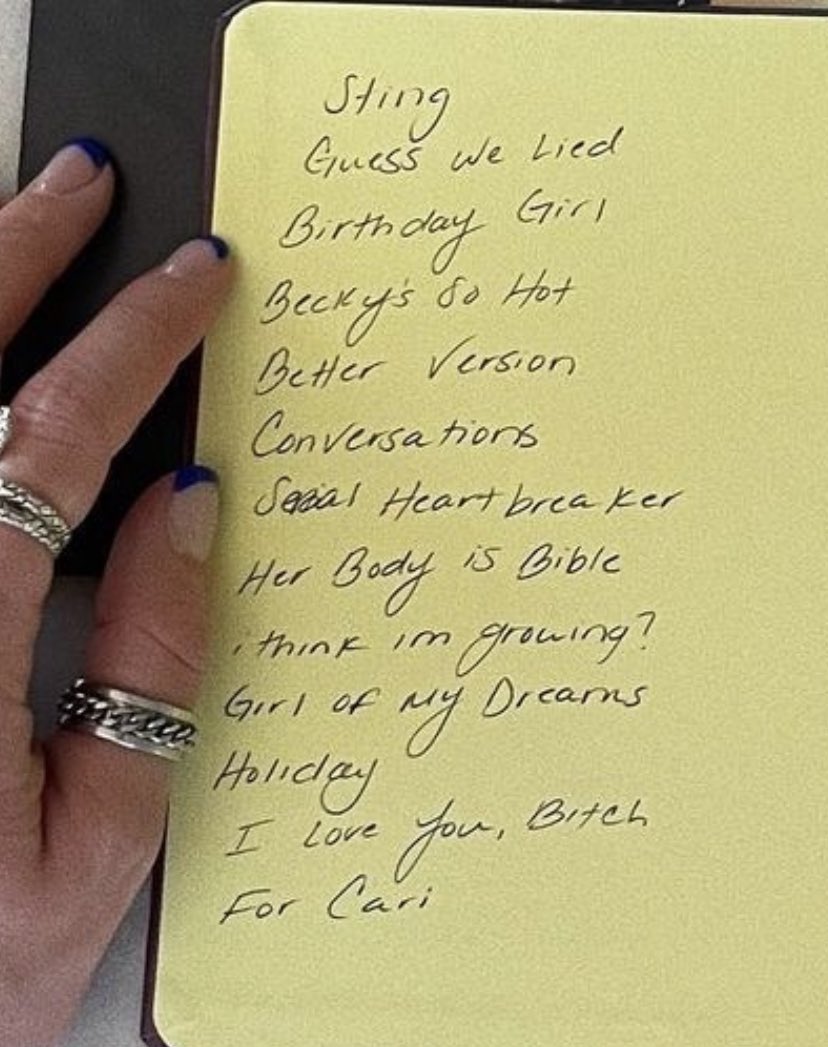 Sting
Guess We Lied
Birthday Girl
Becky's So Hot
Better Version
Conversations
Serial Heartbreaker
Her Body is Bible
i think im growing?
Girl of My Dreams
Holiday
I Love You, Bitch
For Cari